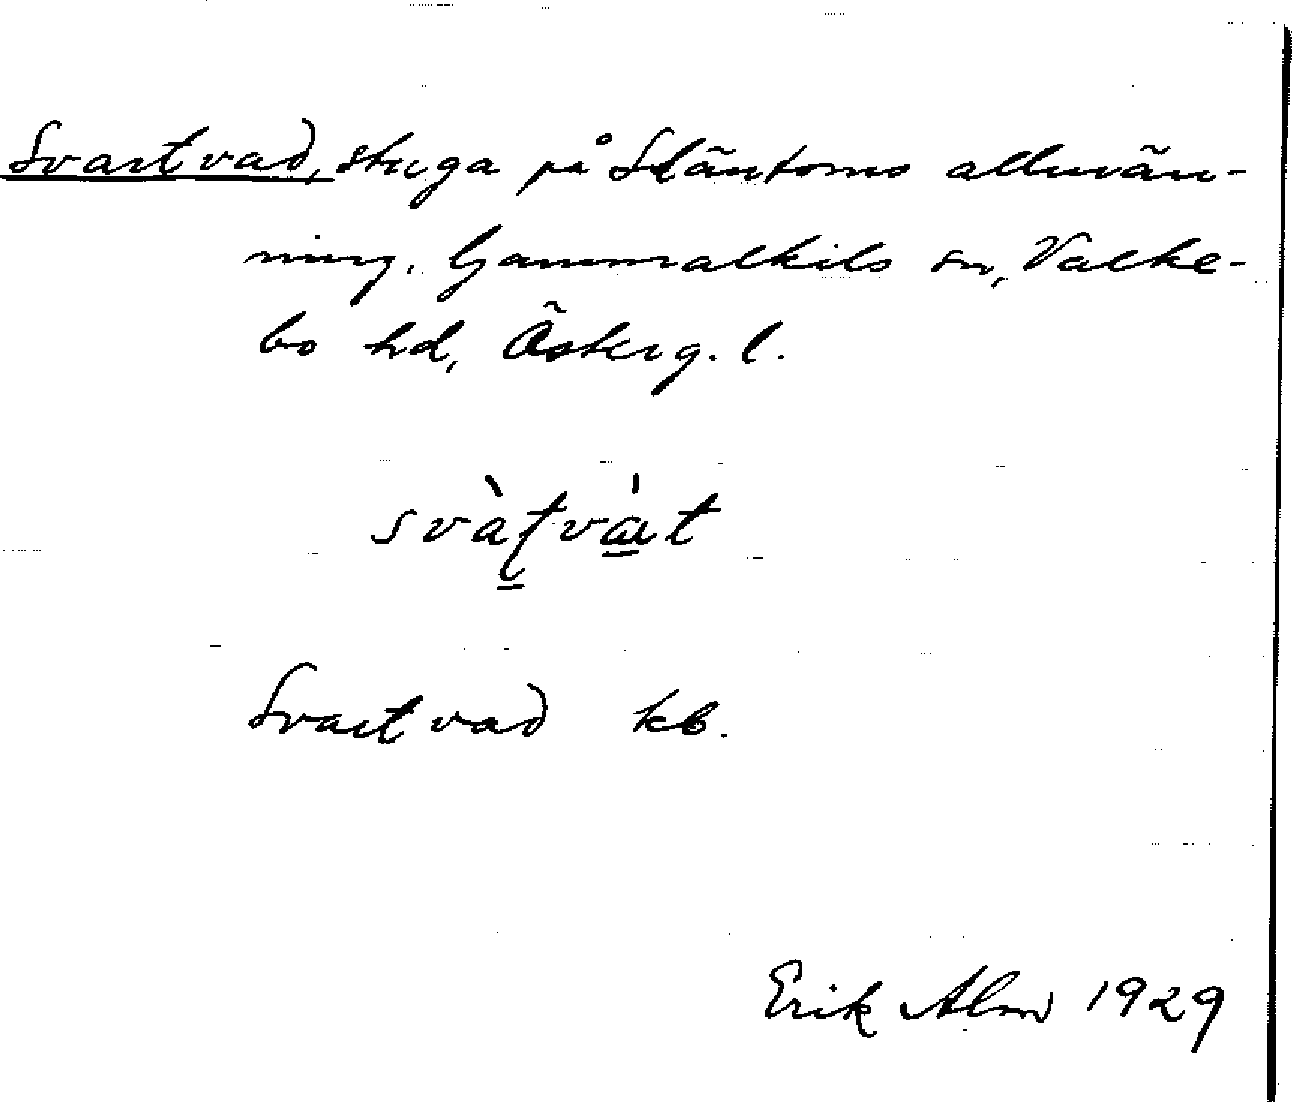 Svartvad, stuga på Släntoms allmän-
ning. Gammalkils sn, Valke-
bo hd, Österg. l.
Svartvad kb.
Erik Alm 1929